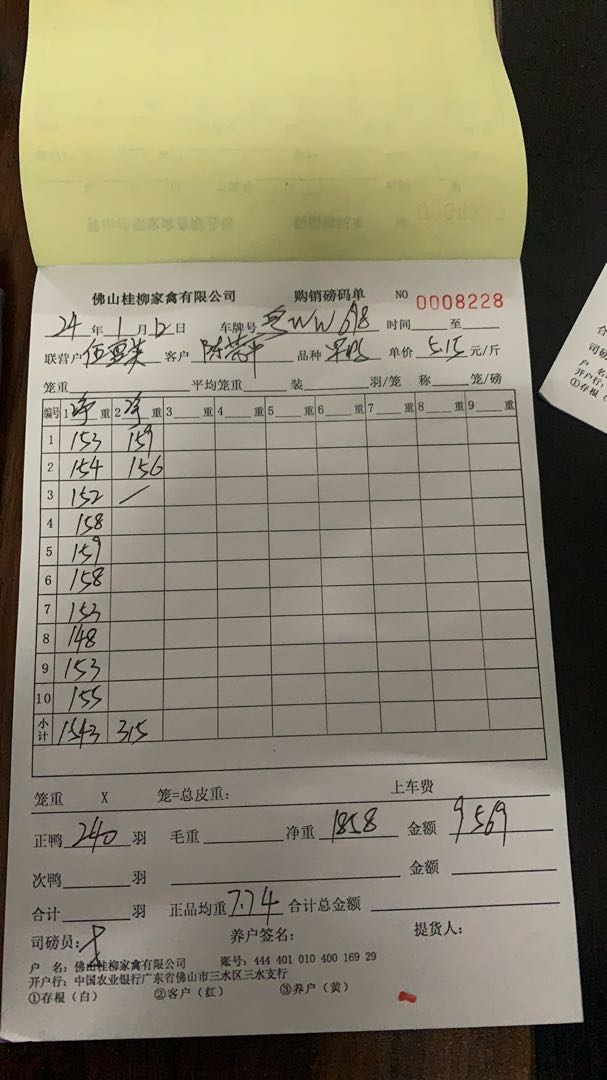 佛山桂柳家禽有限公司 购销磅码单 NO 0008228
24 年 1 月 12 日 车牌号 WW698 时间 至
联营户 客户 陈荣平 品种 单价 5.15 元/斤
笼重 平均笼重 装 羽/笼 称 笼/磅
编号 1 净 重 2 净 重 3 重 4 重 5 重 6 重 7 重 8 重 9 重
1 153 159
2 154 156
3 152 /
4 158
5 159
6 158
7 153
8 148
9 153
10 155
小计 1543 315
笼重 X 笼=总皮重: 上车费
正鸭 240 羽 毛重 净重 1858 金额 9569
次鸭 羽 金额
合计 羽 正品均重 7.74 合计总金额
司磅员: 养户签名: 提货人:
户 名: 佛山桂柳家禽有限公司 账号: 444 401 010 400 169 29
开户行: 中国农业银行广东省佛山市三水区三水支行
①存根(白) ②客户(红) ③养户(黄)